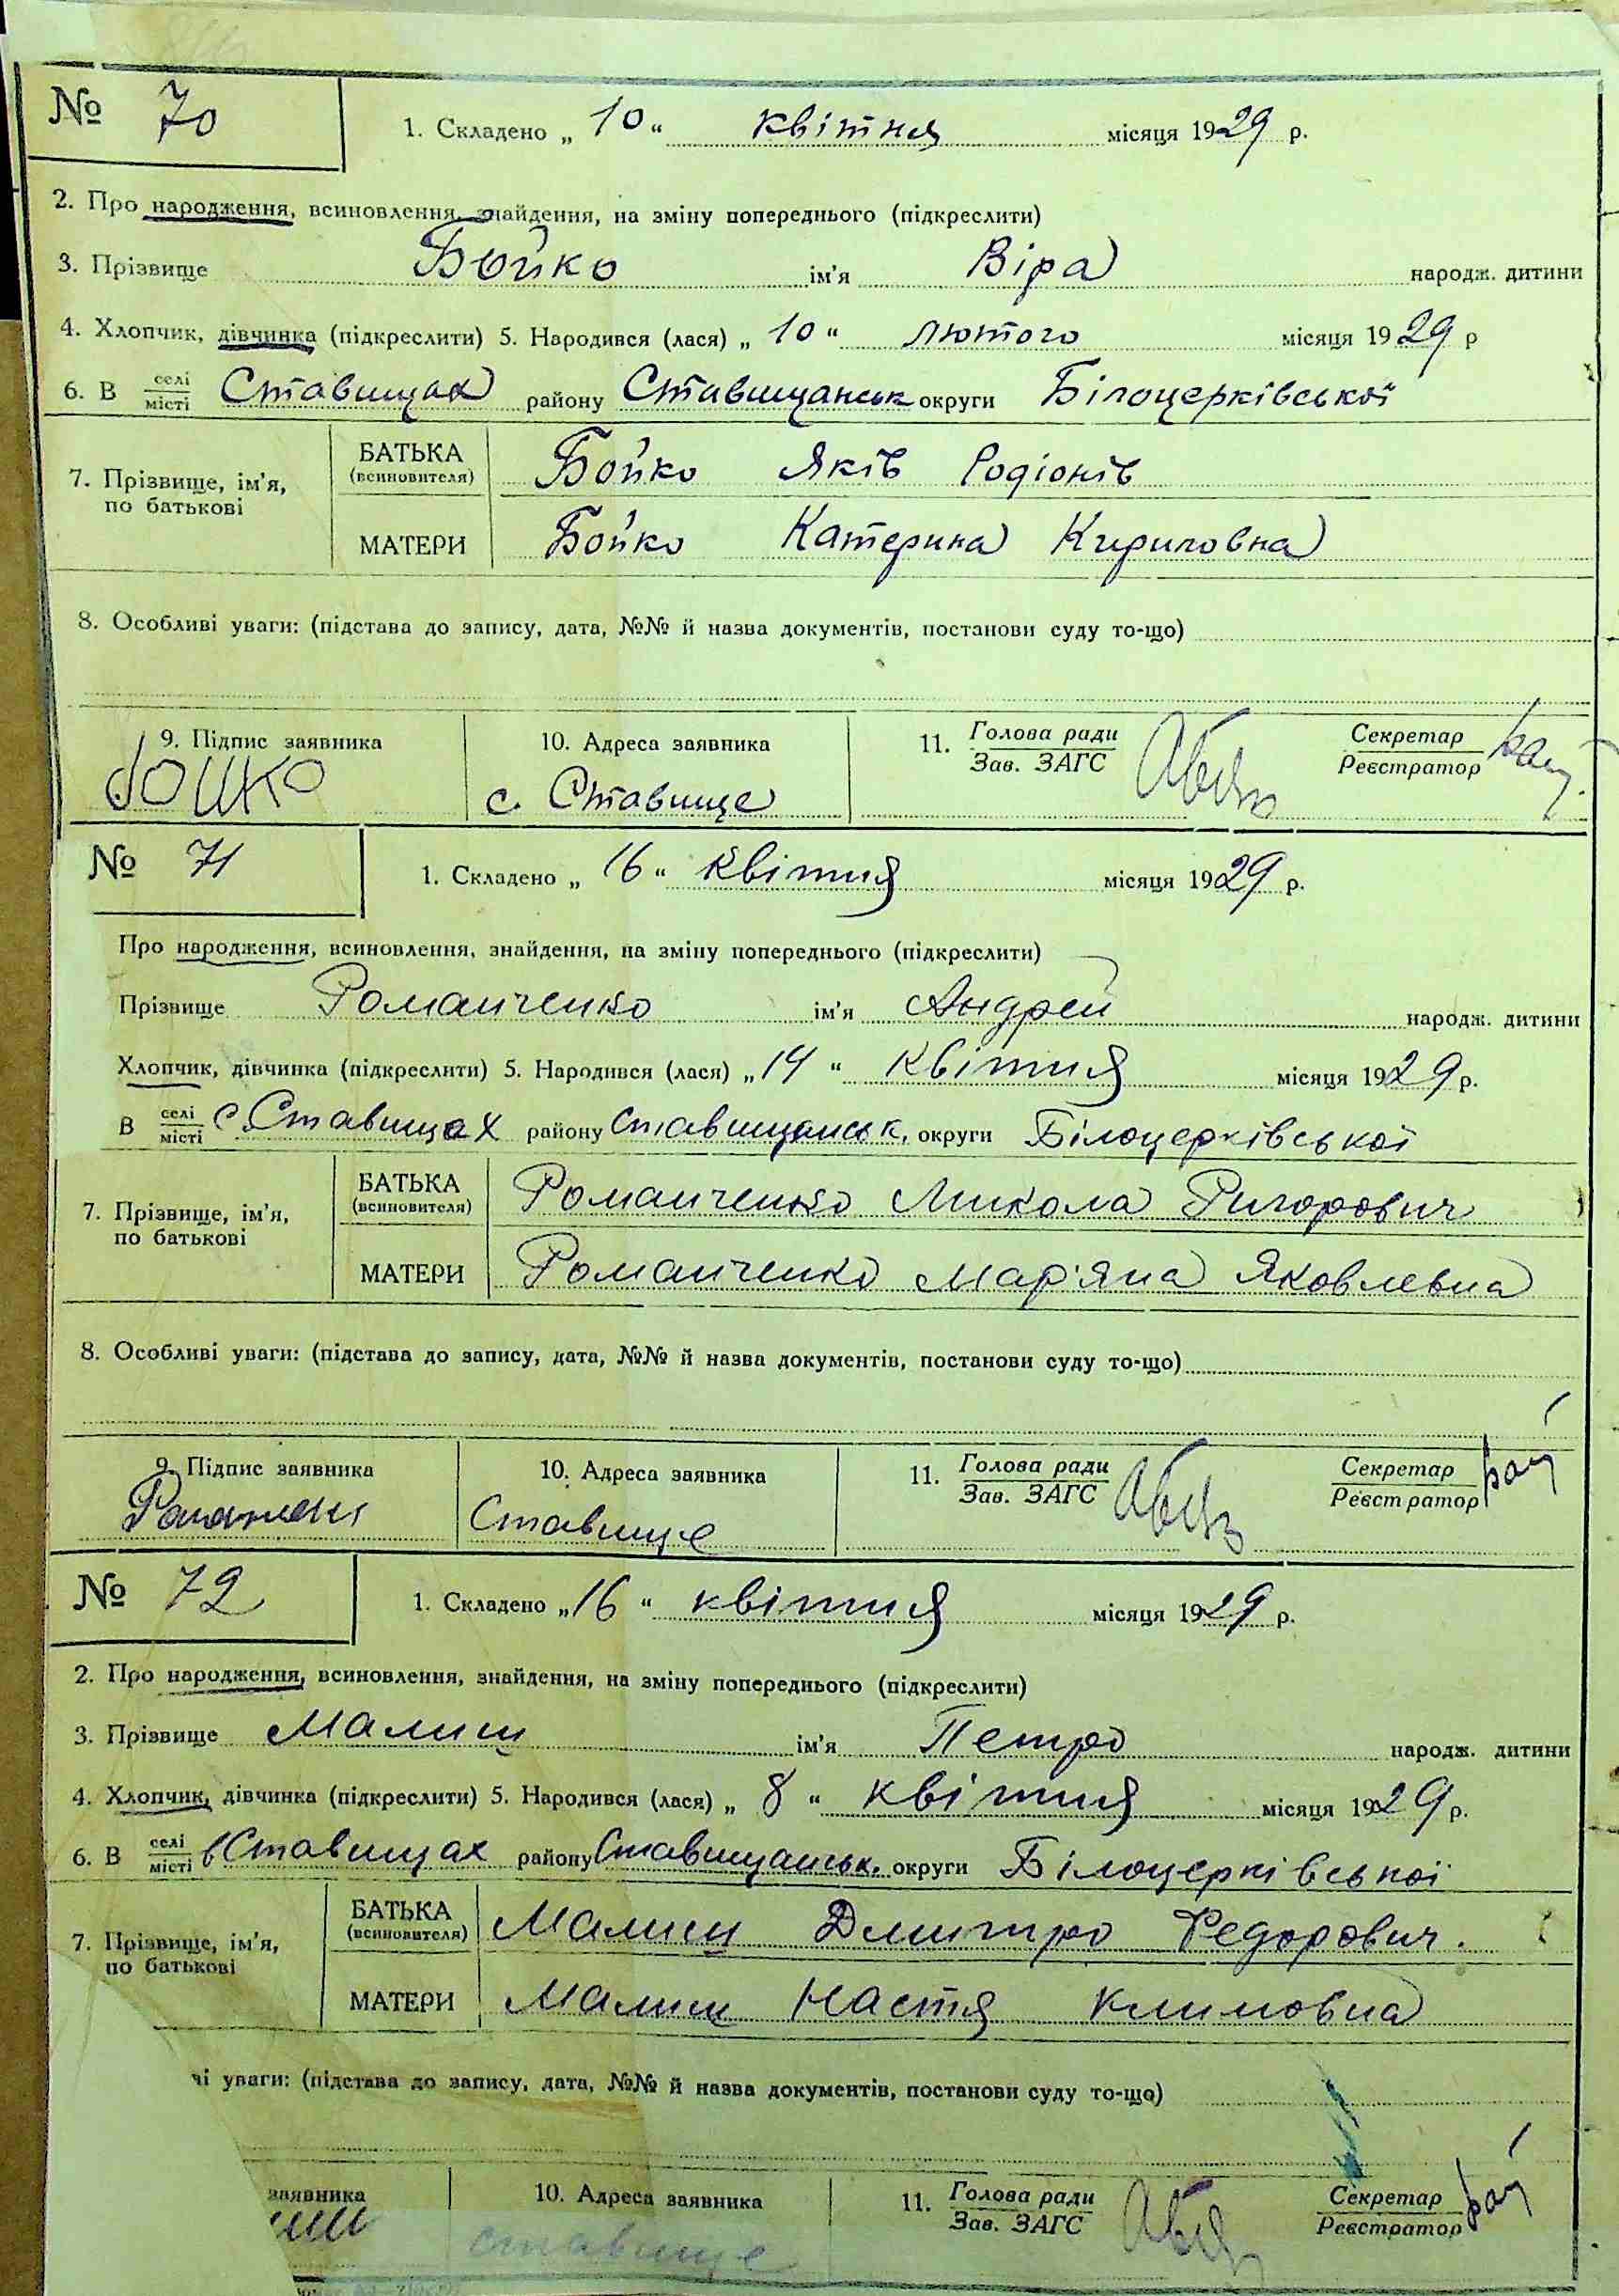 № 70
1. Складено „ 10 “ квітня місяця 1929 р.
2. Про народження, всиновлення, знайдення, на зміну попереднього (підкреслити)
3. Прізвище Бойко ім'я Віра народж. дитини
4. Хлопчик, дівчинка (підкреслити) 5. Народився (лася) „ 10 “ лютого місяця 1929 р
6. В селі місті Ставищах району Ставищанськ округи Білоцерківської
7. Прізвище, ім'я, по батькові
БАТЬКА (всиновителя) Бойко Яків Родіонів
МАТЕРИ Бойко Катерина Кириловна
8. Особливі уваги: (підстава до запису, дата, №№ й назва документів, постанови суду то-що)
9. Підпис заявника 10. Адреса заявника 11. Голова ради Зав. ЗАГС Секретар Реєстратор
Бойко с. Ставище
№ 71
1. Складено „ 16 “ квітня місяця 1929 р.
Про народження, всиновлення, знайдення, на зміну попереднього (підкреслити)
Прізвище Романченко ім'я Андрей народж. дитини
Хлопчик, дівчинка (підкреслити) 5. Народився (лася) „ 14 “ квітня місяця 1929 р.
В селі місті с. Ставищах району Ставищанськ. округи Білоцерківської
7. Прізвище, ім'я, по батькові
БАТЬКА (всиновителя) Романченко Микола Ригорович
МАТЕРИ Романченко Мар'яна Яковлевна
8. Особливі уваги: (підстава до запису, дата, №№ й назва документів, постанови суду то-що)
9. Підпис заявника 10. Адреса заявника 11. Голова ради Зав. ЗАГС Секретар Реєстратор
Ставище
№ 72
1. Складено „ 16 “ квітня місяця 1929 р.
2. Про народження, всиновлення, знайдення, на зміну попереднього (підкреслити)
3. Прізвище Малиш ім'я Петро народж. дитини
4. Хлопчик, дівчинка (підкреслити) 5. Народився (лася) „ 8 “ квітня місяця 1929 р.
6. В селі місті в Ставищах району Ставищанськ. округи Білоцерківської
7. Прізвище, ім'я, по батькові
БАТЬКА (всиновителя) Малиш Дмитро Федорович.
МАТЕРИ Малиш Настя Климовна
ві уваги: (підстава до запису, дата, №№ й назва документів, постанови суду то-що)
заявника 10. Адреса заявника 11. Голова ради Зав. ЗАГС Секретар Реєстратор
ставище